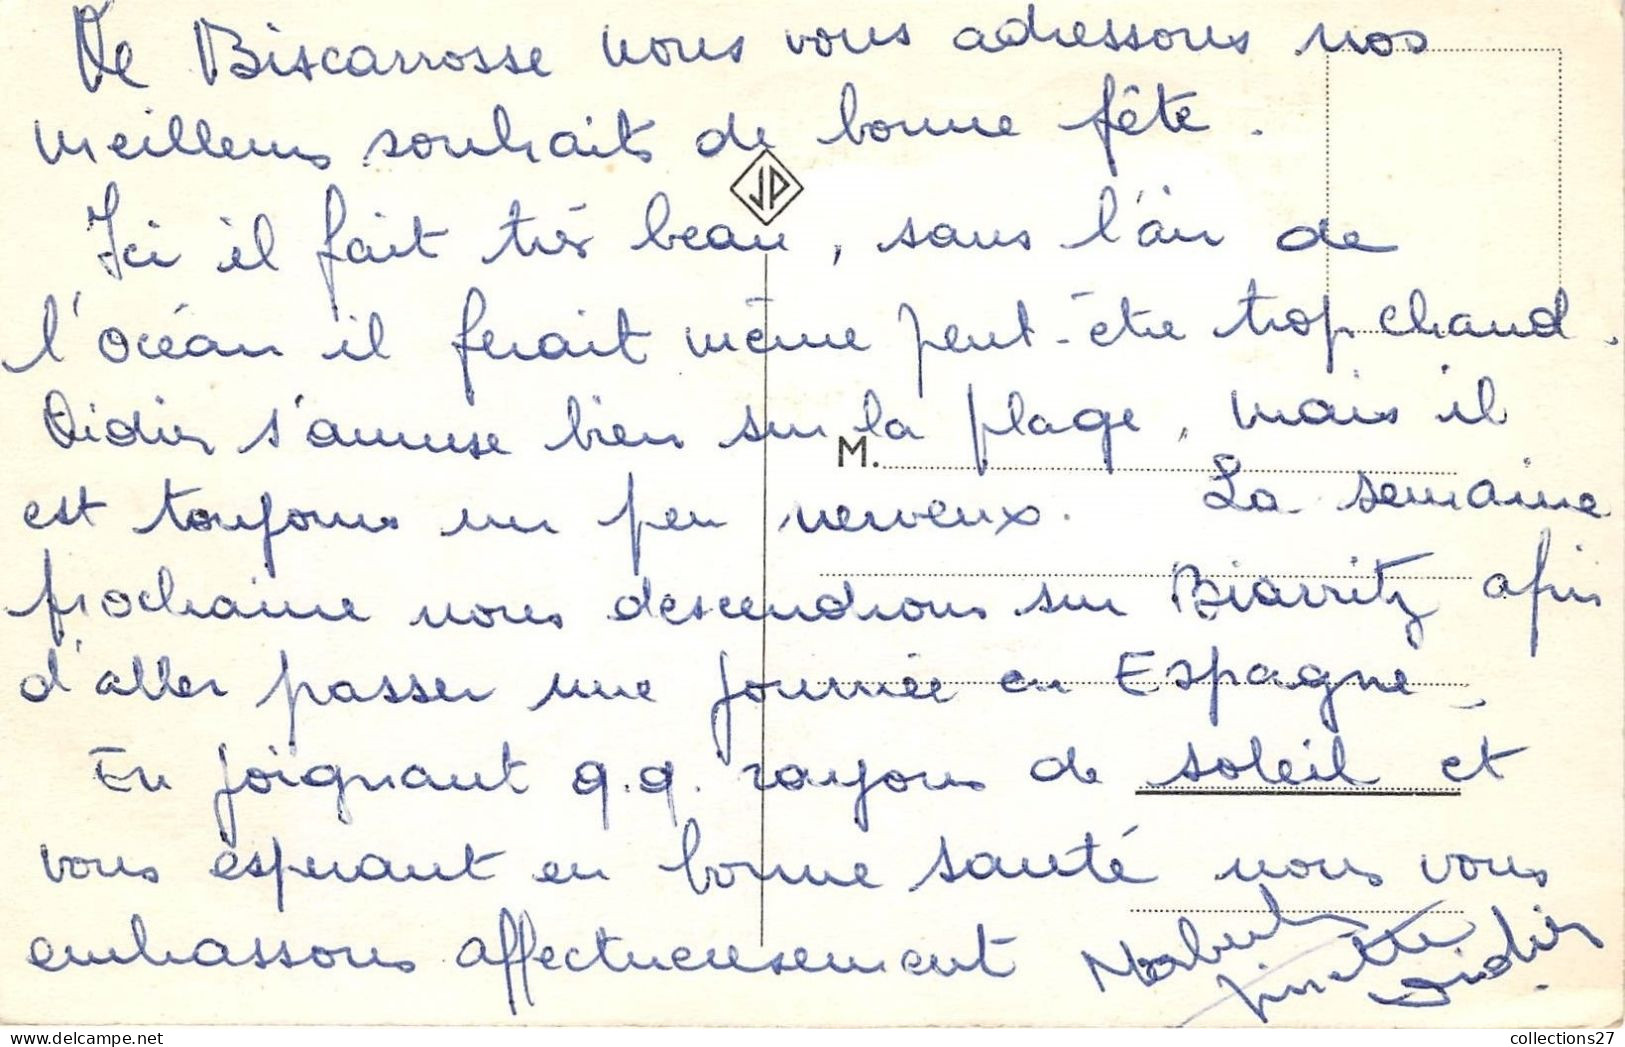 De Biscarrosse nous vous adressons nos
meilleurs souhaits de bonne fête.
JP
Ici il fait très beau, sans l'air de
l'océan il ferait même peut-être trop chaud.
Didier s'amuse bien sur la plage, mais il
M.
est toujours un peu nerveux. La semaine
prochaine nous descendrons sur Biarritz afin
d'aller passer une journée en Espagne.
En joignant q.q. rayons de soleil et
vous espérant en bonne santé nous vous
embrassons affectueusement
Didier
collections27